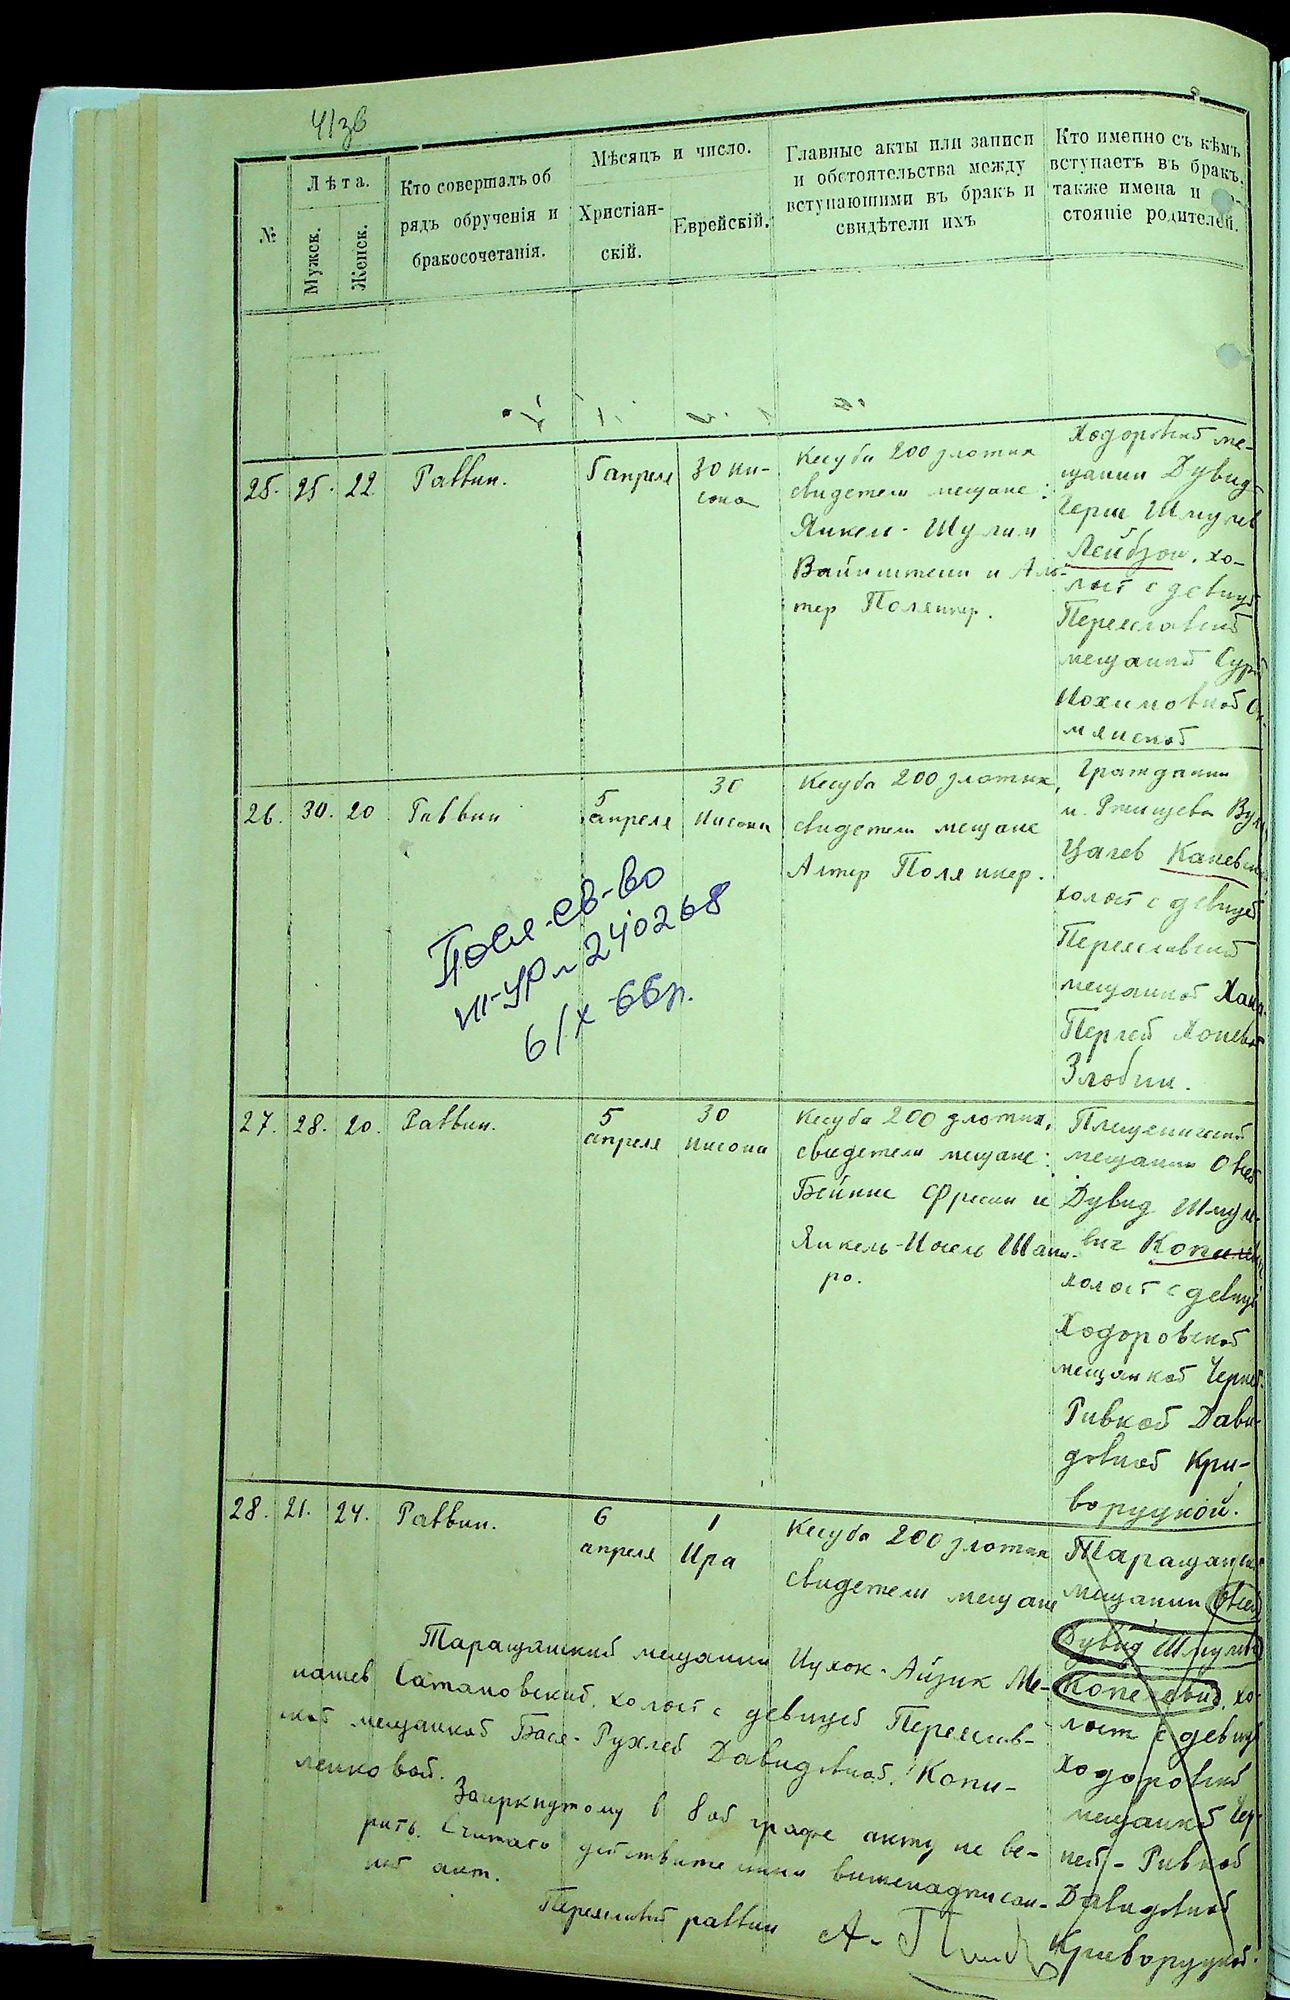 41зв
№
Лѣта.
Мужск.
Женск.
Кто совершалъ об
рядъ обрученія и
бракосочетанія.
Мѣсяцъ и число.
Христіан-
скій.
Еврейскій.
Главные акты или записи
и обстоятельства между
вступающими въ бракъ и
свидѣтели ихъ
Кто именно съ кѣмъ
вступаетъ въ бракъ,
также имена и
стояніе родителей.
25. 25. 22. Раввин.
5 апреля
30 Ни-
сона
Кесуба 200 злотих
свидетели мещане:
Янкель-Шулим
Вайнштейн и Аль-
тер Полянкер.
Ходоровский ме-
щанин Дувид-
Герш Шмулев
Лейбзон, хо-
лост с девицей
Переяславской
мещанкой Сур
Иохимовной
мянской
26. 30. 20 Раввин
5
апреля
30
Нисона
Кесуба 200 злотих,
свидетели мещане
Алтер Полянкер.
Гражданин
м. Ржищева
Цалев Каневский
холост с девицей
Переяславской
мещанкой Хана
Перлей
Злобин.
Посл. св-во
III-УР № 240268
6/X-66р.
27. 28. 20. Раввин.
5
апреля
30
Нисона
Кесуба 200 злотих,
свидетели мещане:
Бейниш Фрейин и
Янкель-Иосель Шапи-
ро.
мещанин Овсей
Дувид Шмуле-
вич
холост с девицей
Ходоровской
мещанкой Черней-
Ривкой Дави-
довной Кри-
воруцкой.
28. 21. 24. Раввин.
6
апреля
1
Ира
Кесуба 200 злотих
свидетели мещане
Таращанский
мещанин Овсей
Дувид Шмулев
Копелевич, хо-
лост с девицей
Ходоровской
мещанкой Чер-
ней-Ривкой
Давидовной
Криворуцкой.
Таращанский мещанин Ицхок-Айзик Ме-
нашев Сатановский, холост с девицей Переяслав-
ской мещанкой Бася-Рухлей Давидовной Копи-
ленковой.
Зачеркнутому в 8ой графе акту не ве-
рить. Считать действительным вышенадписан-
ной акт.
Переяславский раввин А.